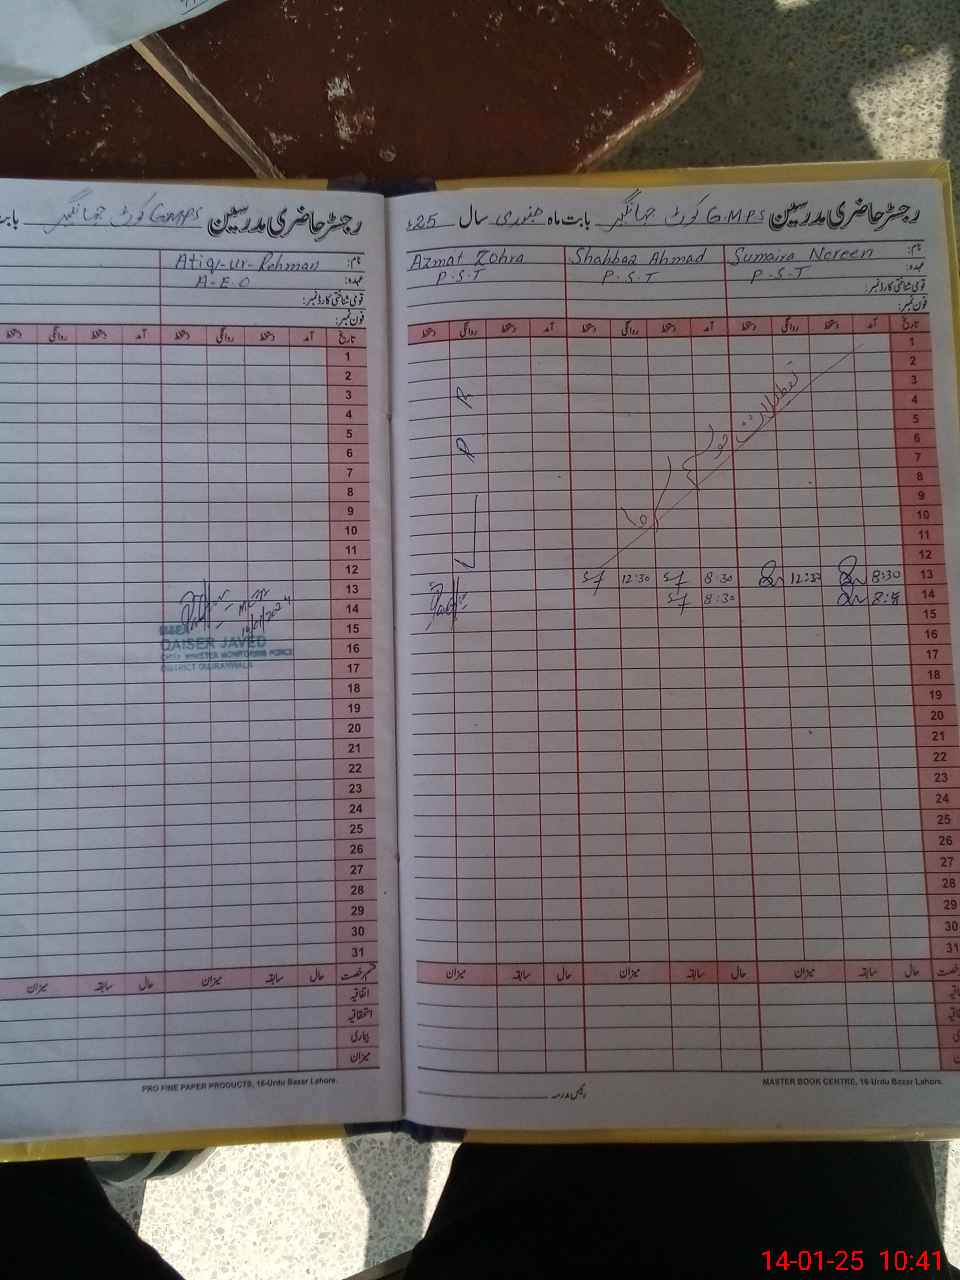 رجسٹر حاضری مدرسین G.M.P.S کوٹ جہانگیر بابت ماہ جنوری سال 25ء
نام: Sumaira Noreen Shahbaz Ahmad Azmat Zohra
عہدہ: P.S.T P.S.T P.S.T
قومی شناختی کارڈ نمبر:
فون نمبر:
تاریخ آمد دستخط روانگی دستخط آمد دستخط روانگی دستخط آمد دستخط روانگی دستخط
1
2
3
4
5
6
7
8
9
10
11
12
13 8:30 12:30 8:30 12:30
14 8:30
15
16
17
18
19
20
21
22
23
24
25
26
27
28
29
30
31
حال سابقہ میزان حال سابقہ میزان حال سابقہ میزان
MASTER BOOK CENTRE, 16-Urdu Bazar Lahore.
رئیس مدرسہ
رجسٹر حاضری مدرسین G.M.P.S کوٹ جہانگیر بابت
نام: Atiq-ur-Rehman
عہدہ: A.E.O
قومی شناختی کارڈ نمبر:
فون نمبر:
تاریخ آمد دستخط روانگی دستخط آمد دستخط روانگی دستخط
1
2
3
4
5
6
7
8
9
10
11
12
13
14
15
16
17
18
19
20
21
22
23
24
25
26
27
28
29
30
31
QAISER JAVED
CHIEF MINISTER MONITORING FORCE
DISTRICT GUJRANWALA
رخصت حال سابقہ میزان حال سابقہ میزان
اتفاقیہ
استحقاقیہ
بیماری
میزان
PRO FINE PAPER PRODUCTS, 16-Urdu Bazar Lahore.
14-01-25 10:41